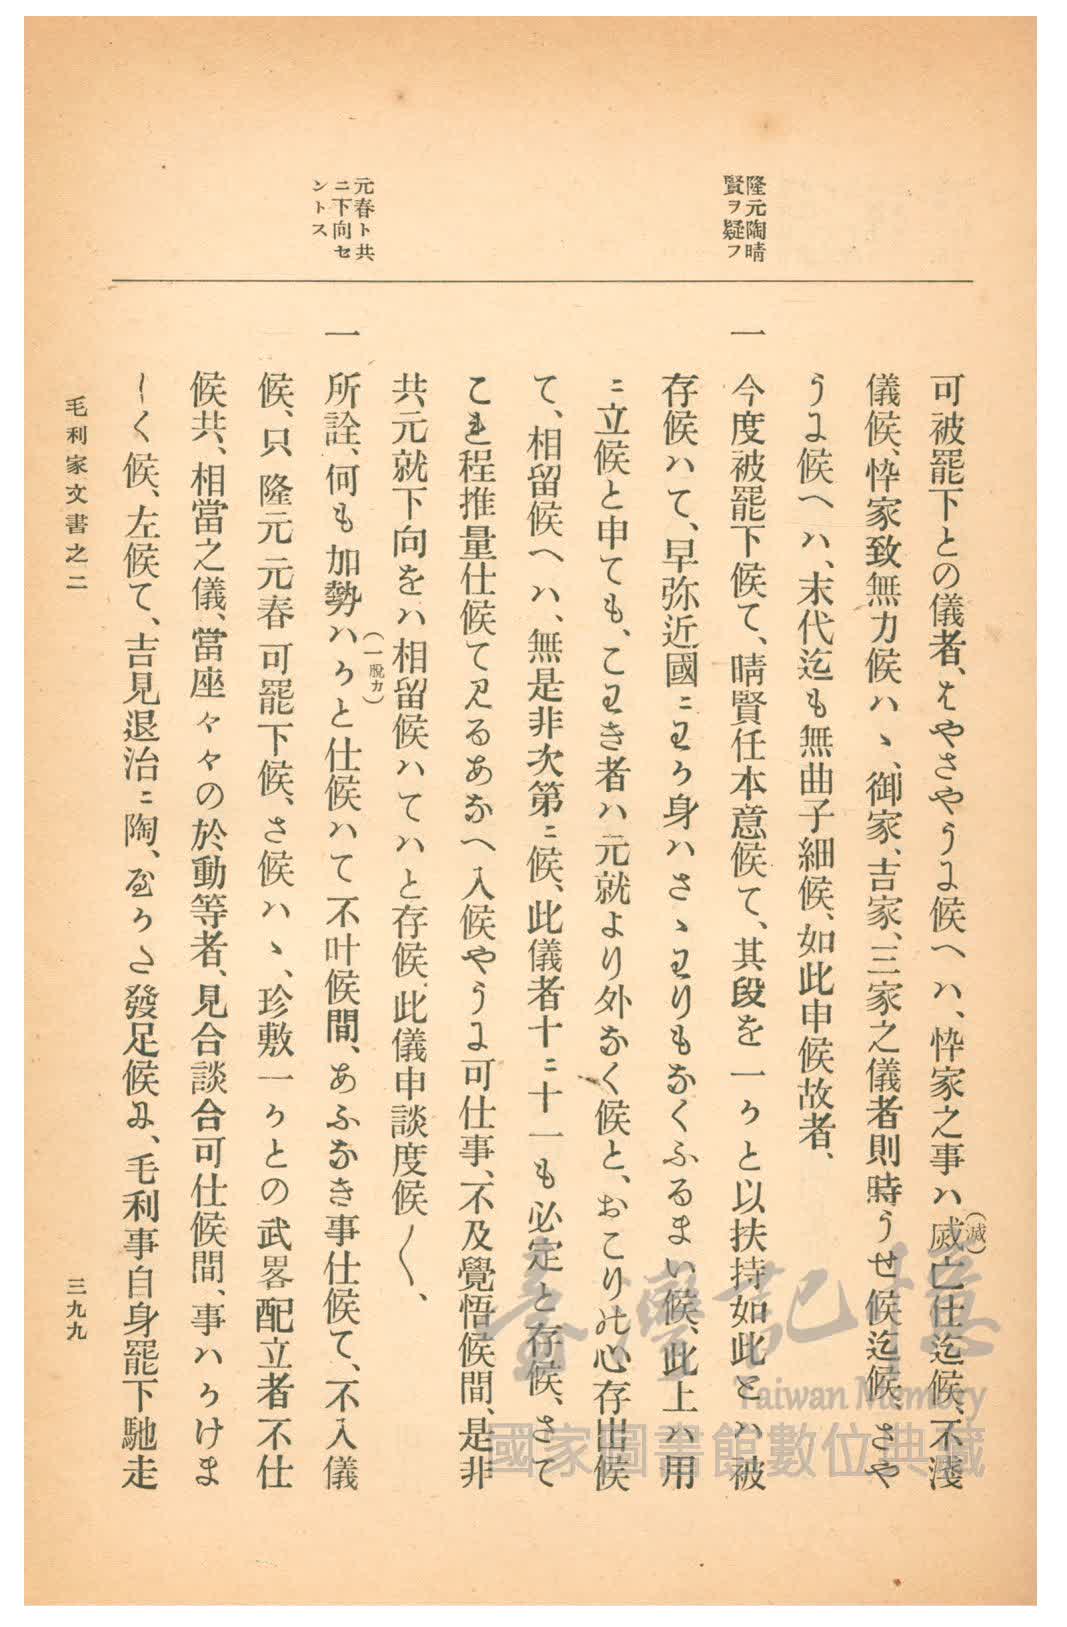 隆元陶晴
賢ヲ疑フ
元春ト共
ニ下向セ
ントス
可被罷下との儀者、はやさやうに候へハ、忰家之事ハ烕亡仕迄候、不淺
(滅)
儀候、忰家致無力候ハヽ、御家、吉家、三家之儀者則時うせ候迄候、さや
うに候へハ、末代迄も無曲子細候、如此申候故者、
一 今度被罷下候て、晴賢任本意候て、其段を一かと以扶持如此とハ被
存候ハて、早弥近國ニわか身ハさヽわりもなくふるまい候、此上ハ用
ニ立候と申ても、こわき者ハ元就より外なく候と、おこりの心存出候
て、相留候へハ、無是非次第ニ候、此儀者十ニ十一も必定と存候、さて
これ程推量仕候て見るあなへ入候やうに可仕事、不及覺悟候間、是非
共元就下向をハ相留候ハてハと存候、此儀申談度候〱、
一 所詮、何も加勢ハかと仕候ハて不叶候間、あふなき事仕候て、不入儀
(一脱カ)
候、只 隆元 元春 可罷下候、さ候ハヽ、珍敷一かとの武畧配立者不仕
候共、相當之儀、當座々々の於動等者、見合談合可仕候間、事ハかけま
しく候、左候て、吉見退治ニ陶、至かた發足候ニ、毛利事自身罷下馳走
毛利家文書之二
三九九
臺灣記憶
Taiwan Memory
國家圖書館數位典藏